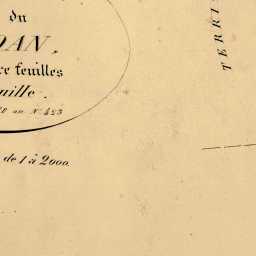 du
DAN,
re feuilles
uille.
au N° 423
de 1 à 2000.
TERRI